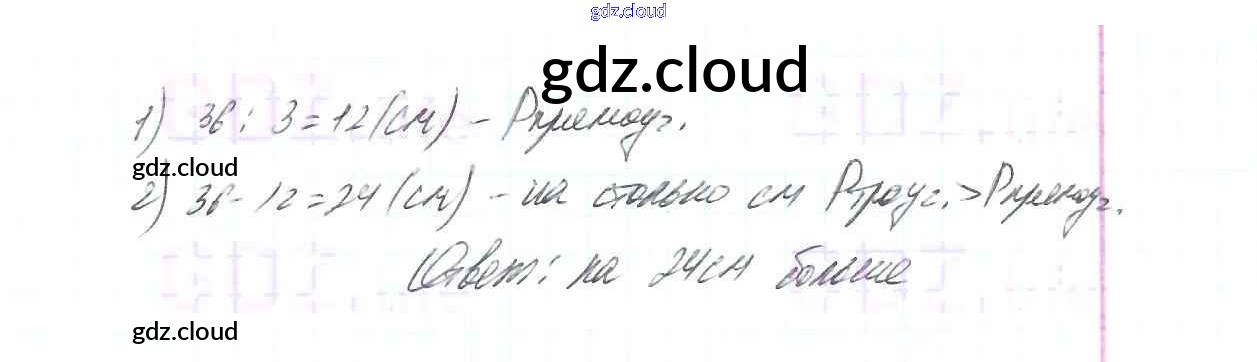 gdz.cloud
gdz.cloud
1) 36 : 3 = 12 (см) - Pпрямоуг.
gdz.cloud
2) 36 - 12 = 24 (см) - на столько см Pтреуг. > Pпрямоуг.
Ответ: на 24 см больше
gdz.cloud